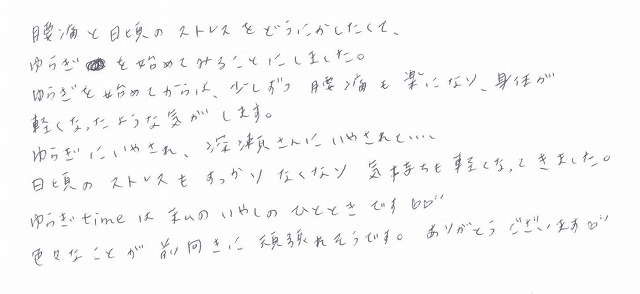 腰痛と日頃のストレスをどうにかしたくて、
ゆらぎを始めてみることにしました。
ゆらぎを始めてからは、少しずつ腰痛も楽になり、身体が
軽くなったような気がします。
ゆらぎにいやされ、深瀬さんにいやされて....、
日頃のストレスもすっかりなくなり気持ちも軽くなってきました。
ゆらぎtimeは私のいやしのひとときです♡♡
色々なことが前向きに頑張れそうです。ありがとうございます♡